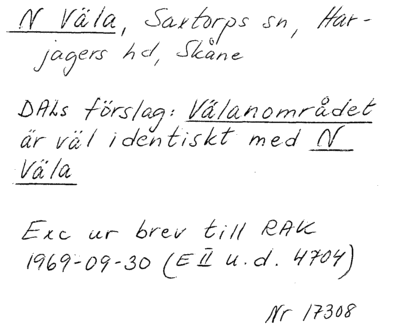 N Väla, Saxtorps sn, Har-
jagers hd, Skåne
DALs förslag: Välanområdet
är väl identiskt med N
Väla
Exc ur brev till RAK
1969-09-30 (E II u.d. 4704)
Nr 17308